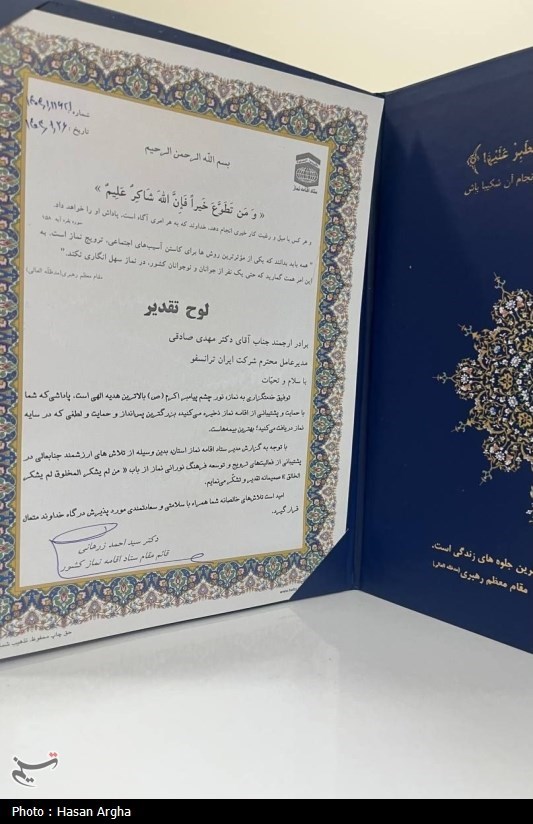 شماره:
تاریخ:
بسم الله الرحمن الرحیم
ستاد اقامه نماز
« وَ مَن تَطَوَّعَ خَیراً فَإِنَّ اللّهَ شَاکِرٌ عَلیمٌ »
و هر کس با میل و رغبت کار خیری انجام دهد، خداوند که به هر امری آگاه است، پاداش او را خواهد داد.
" همه باید بدانند که یکی از مؤثرترین روش ها برای کاستن آسیب‌های اجتماعی، ترویج نماز است. به
این امر همت گمارید که حتی یک نفر از جوانان و نوجوانان کشور، در نماز سهل انگاری نکند."
مقام معظم رهبری(مدظله العالی)
لوح تقدیر
برادر ارجمند جناب آقای دکتر مهدی صادقی
مدیرعامل محترم شرکت ایران ترانسفو
با سلام و تحیّات
توفیق خدمتگزاری به نماز، نور چشم پیامبر اکرم (ص) بالاترین هدیه الهی است. پاداشی که شما
با حمایت و پشتیبانی از اقامه نماز ذخیره می‌کنید، بزرگترین پس‌انداز و حمایت و لطفی که در سایه
نماز دریافت می‌کنید؛ بهترین بیمه‌هاست.
با توجه به گزارش مدیر ستاد اقامه نماز استان، بدین وسیله از تلاش های ارزشمند جنابعالی در
پشتیبانی از فعالیت‌های ترویج و توسعه فرهنگ نورانی نماز از باب « من لم یشکر المخلوق لم یشکر
الخالق » صمیمانه تقدیر و تشکر می‌نمایم.
امید است تلاش‌های خالصانه شما همراه با سلامتی و سعادتمندی مورد پذیرش درگاه خداوند متعال
قرار گیرد.
دکتر سید احمد زرهانی
قائم مقام ستاد اقامه نماز کشور
انجام آن شکیبا باش
ترین جلوه های زندگی است.
مقام معظم رهبری
تسنیم
Photo : Hasan Argha